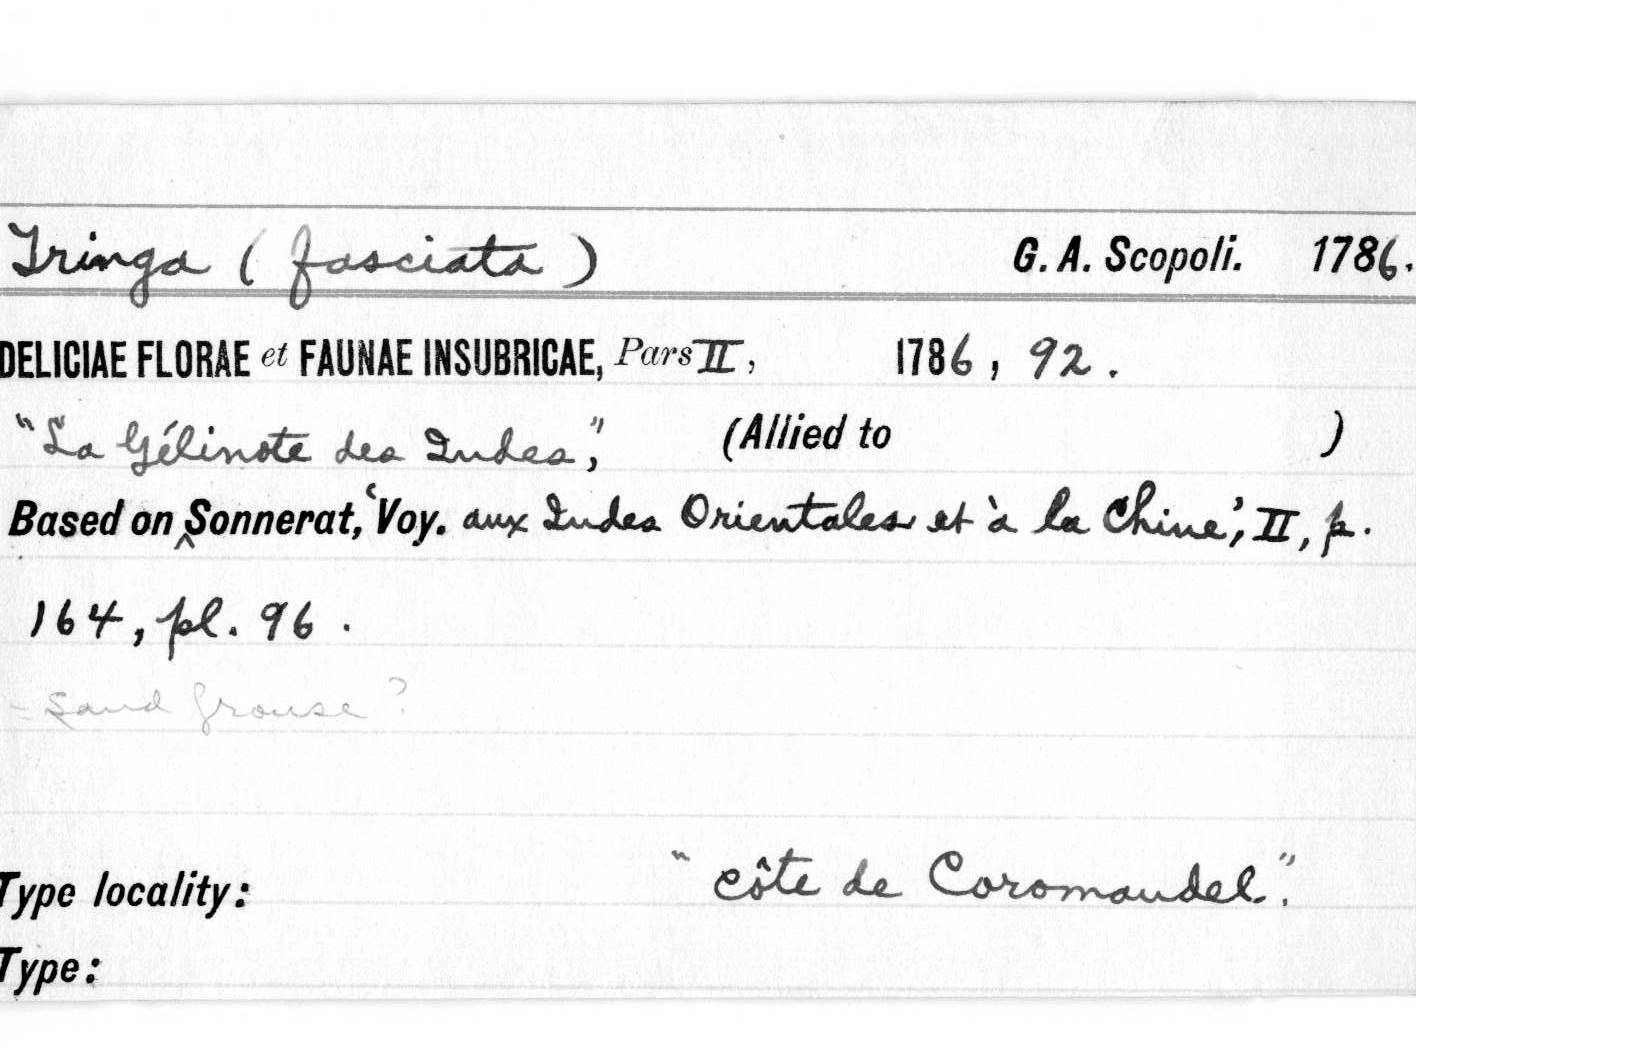 Tringa ( fasciata ) G. A. Scopoli. 1786.
DELICIAE FLORAE et FAUNAE INSUBRICAE, Pars II, 1786, 92.
"La Gélinote des Indes", (Allied to )
Based on ‸Sonnerat, 'Voy. aux Indes Orientales et à la Chine', II, p.
164, pl. 96.
= Sand Grouse?
Type locality: "côte de Coromandel".
Type: